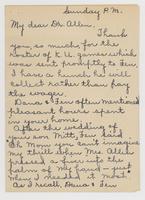 Sunday P.M.
My dear Dr. Allen,
Thank
you, so much, for the
roster of K U games which
was sent promptly to Fen.
I have a hunch he will
collect rather than pay
the wager.
Dana & Fen often mentioned
pleasant hours spent
in your home.
After the wedding
your son Mitt, Fen said
Oh Mom you can't imagine
the thrill when Mrs. Allen
pressed a five into the
palm of my hand — just
when I needed it most.
As I recall, Dana & Fen